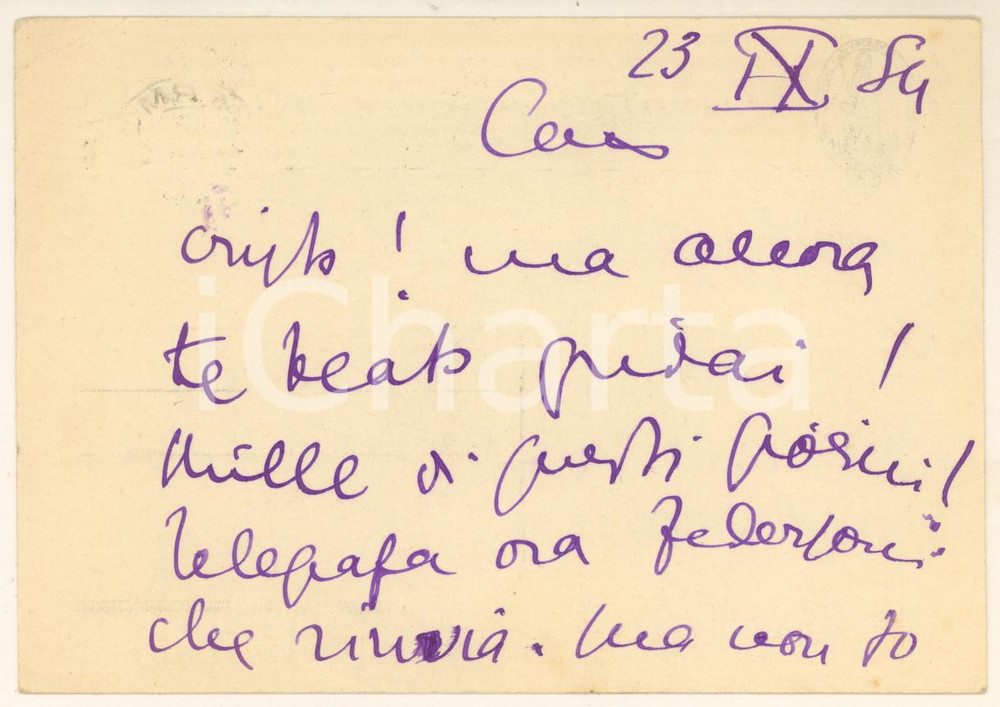 23 IX 84
Caro
! ma allora
te beato gridai !
Mille di questi giorni !
telegrafa ora Federzoni:
che rinvia. Ma non so
iCharta